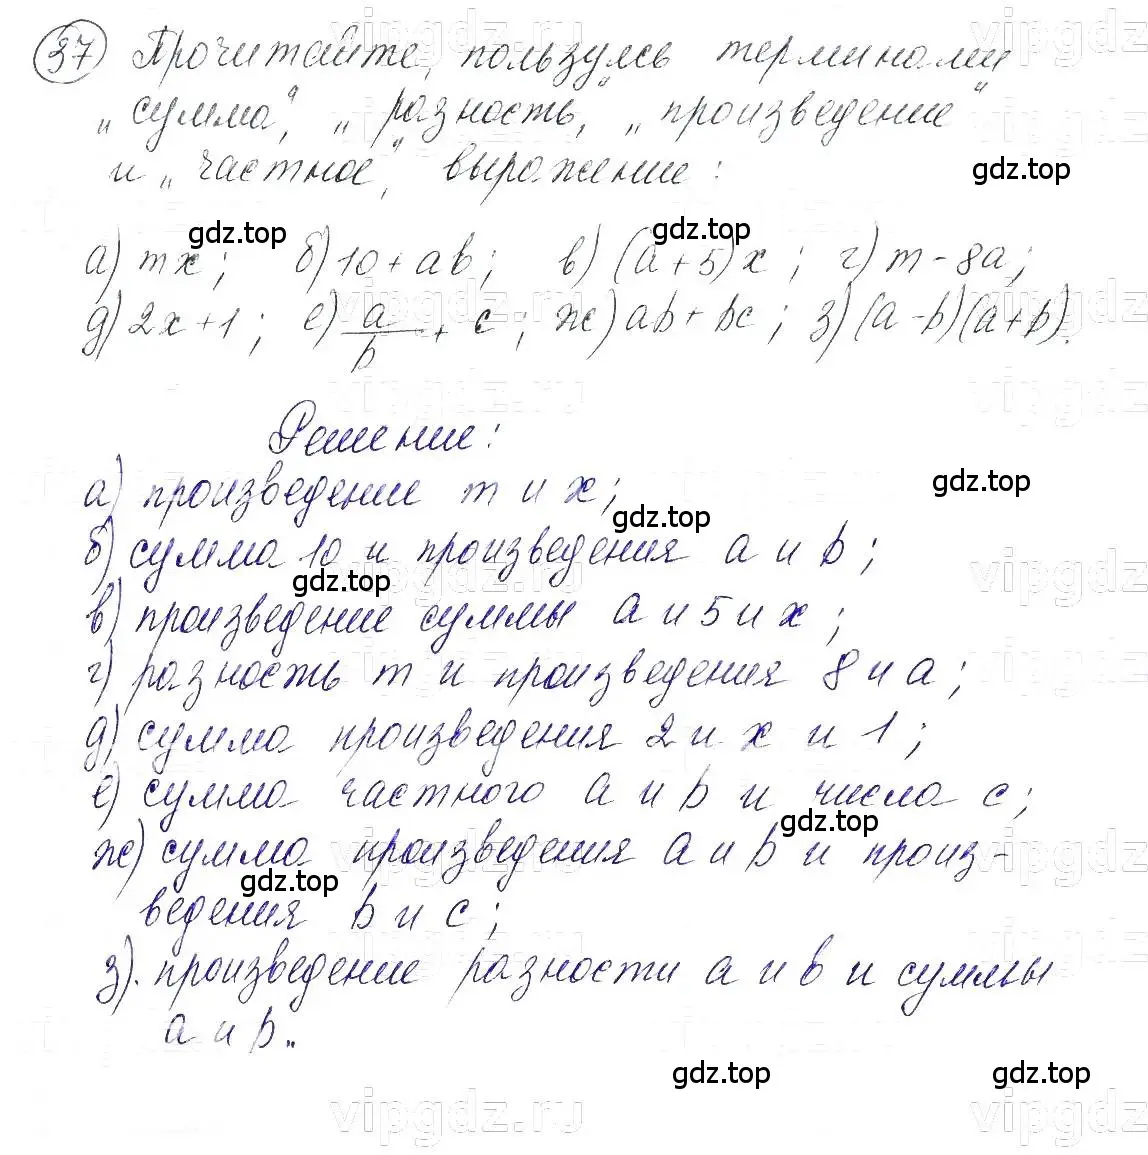 37 Прочитайте, пользуясь терминами
„сумма“, „разность“, „произведение“
и „частное“, выражение:
gdz.top
gdz.top
gdz.top
а) mx; б) 10 + ab; в) (a + 5)x; г) m - 8a;
д) 2x + 1; е) a/b + c; ж) ab + bc; з) (a - b)(a + b).
vipgdz.ru
Решение:
а) произведение m и x;
gdz.top
gdz.top
б) сумма 10 и произведения a и b;
gdz.top
vipgdz.ru
в) произведение суммы a и 5 и x;
г) разность m и произведения 8 и a;
д) сумма произведения 2 и x и 1;
е) сумма частного a и b и числа c;
gdz.top
ж) сумма произведения a и b и произ-
gdz.top
ведения b и c;
з). произведение разности a и b и суммы
a и b..
gdz.top
gdz.top
vipgdz.ru